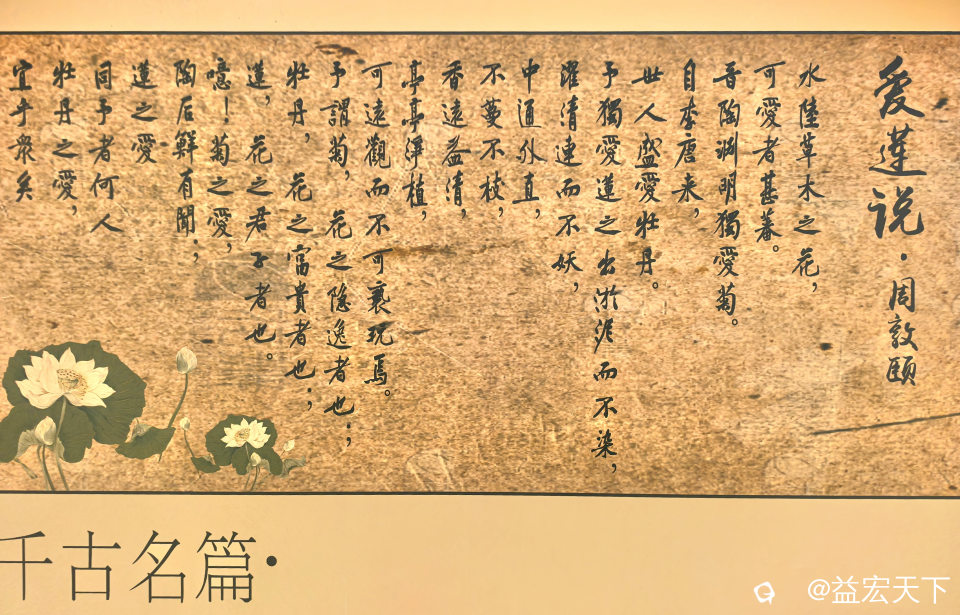 爱蓮说·周敦頤
水陸草木之花，
可愛者甚蕃。
晋陶渊明獨愛菊。
自李唐来，
世人盛愛牡丹。
予獨愛蓮之出淤泥而不染，
濯清涟而不妖，
中通外直，
不蔓不枝，
香遠益清，
亭亭淨植，
可遠觀而不可亵玩焉。
予謂菊，花之隐逸者也；
牡丹，花之富貴者也；
蓮，花之君子者也。
噫！菊之愛，
陶后鲜有聞；
蓮之愛
同予者何人
牡丹之愛，
宜乎衆矣
千古名篇·
@益宏天下